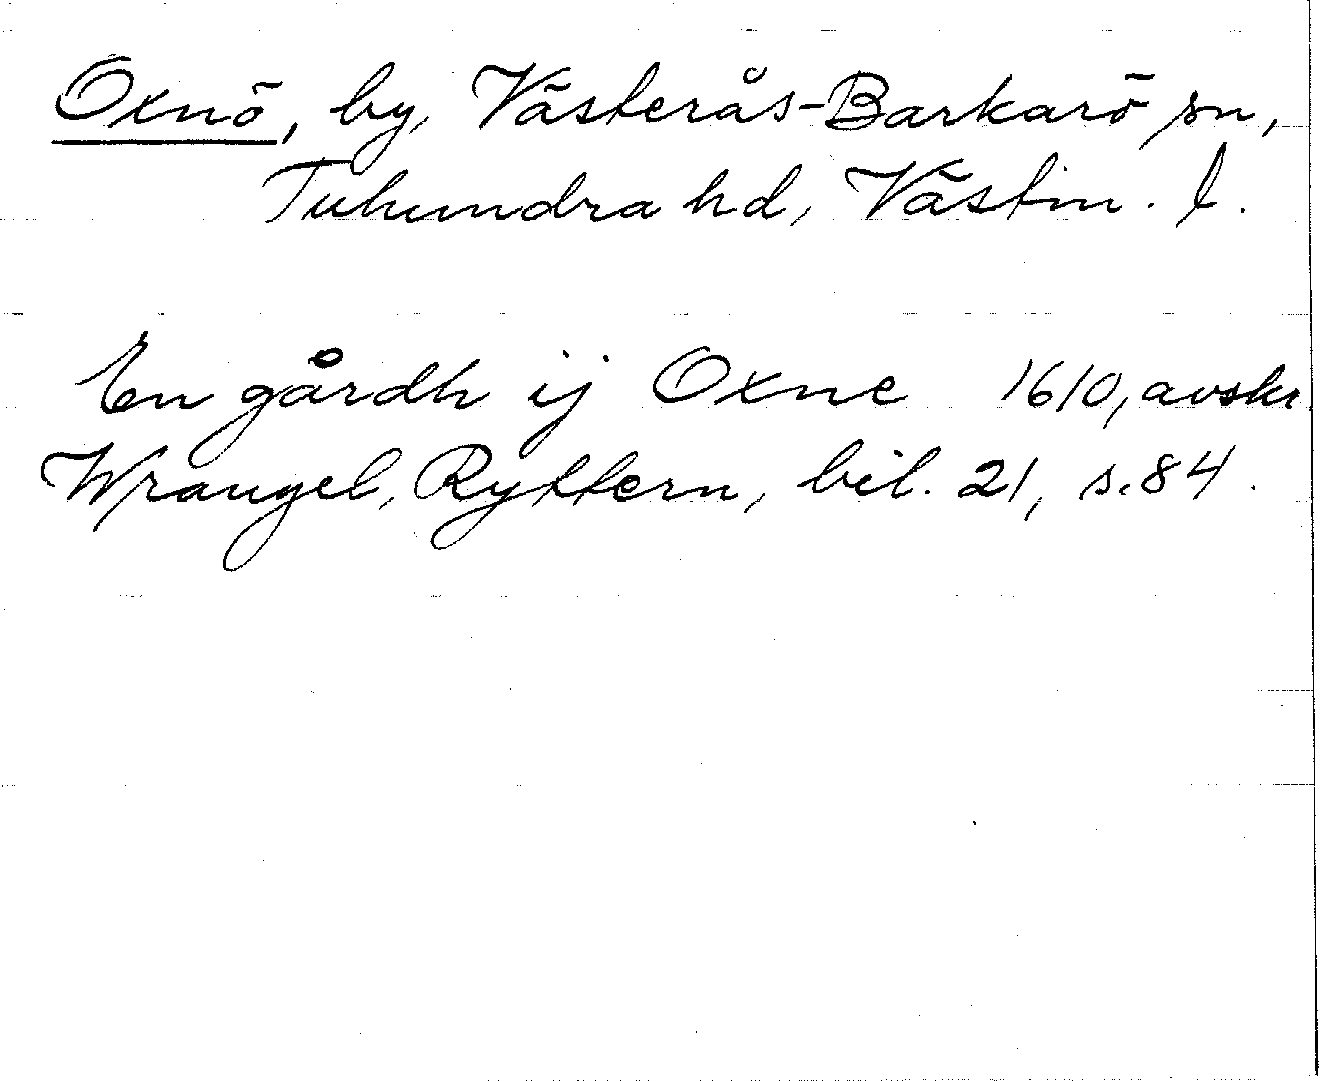 Oxnö, by, Västerås-Barkarö sn,
Tuhundra hd, Västm. l.
En gårdh ij Oxne 1610, avskr.
Wrangel, Ryttern, bil. 21, s. 84.